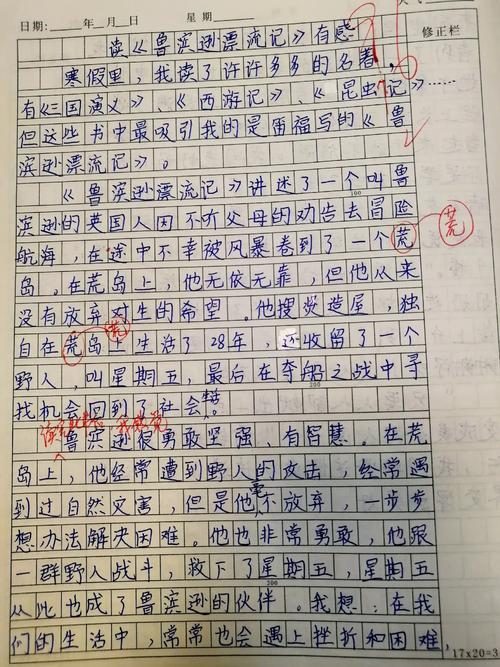 日期:____年__月__日 星期____
修正栏
读《鲁滨逊漂流记》有感
寒假里,我读了许许多多的名著,
有《三国演义》、《西游记》、《昆虫记》……
但这些书中最吸引我的是笛福写的《鲁
滨逊漂流记》。
《鲁滨逊漂流记》讲述了一个叫鲁
100
滨逊的英国人因不听父母的劝告去冒险
航海,在途中不幸被风暴卷到了一个荒
荒
岛。在荒岛上,他无依无靠,但他从来
没有放弃对生的希望。他搜炎造屋,独
荒
自在荒岛上生活了28年,还收留了一个
野人,叫星期五,最后在夺船之战中寻
200
找机会回到了社会。
鲁滨逊很勇敢坚强、有智慧。在荒
岛上,他经常遭到野人的攻击,经常遇
到过自然灾害,但是他毫不放弃,一步步
想办法解决困难。他也非常勇敢,他跟
一群野人战斗,救下了星期五,星期五
300
从此也成了鲁滨逊的伙伴。我想:在我
们的生活中,常常也会遇上挫折和困难,
17×20=3